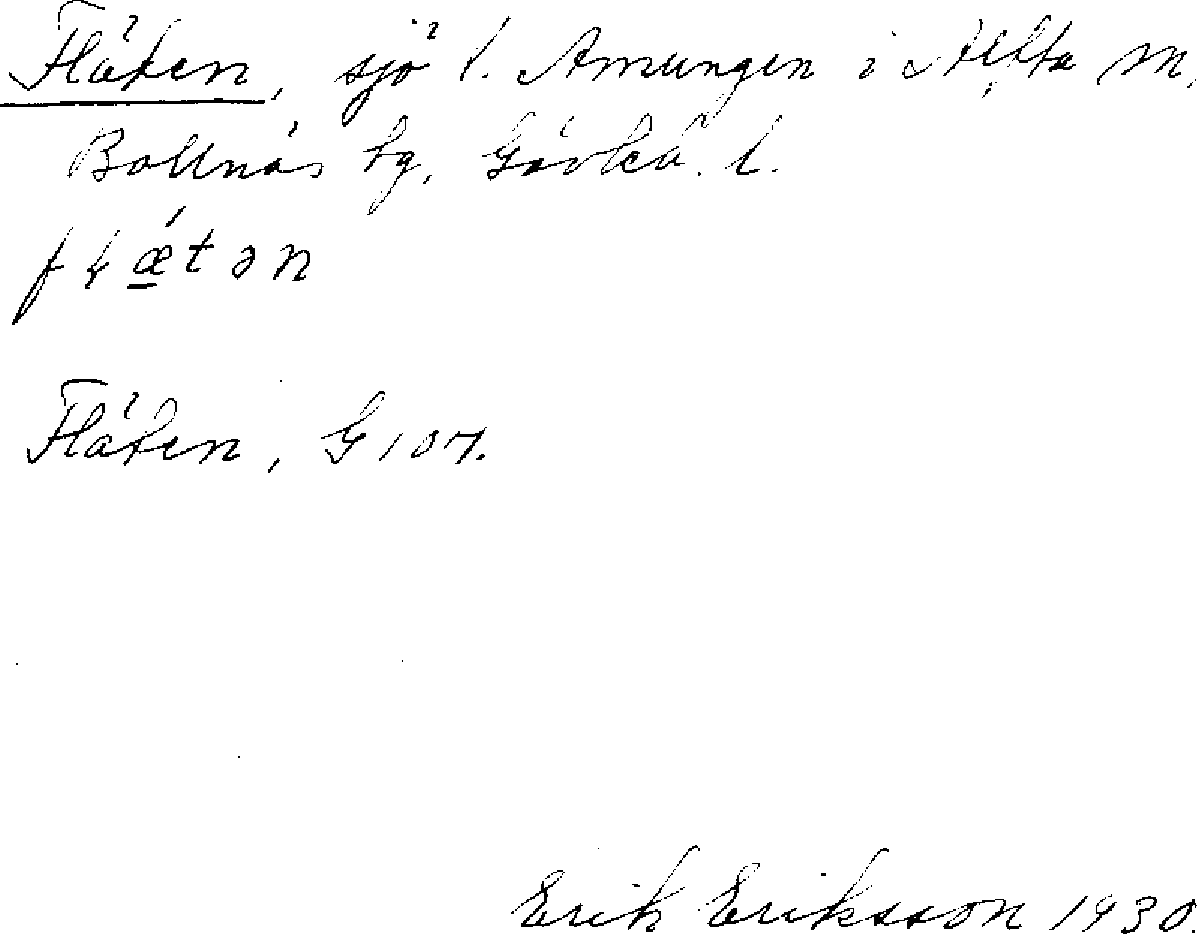 Fläten, sjö Amungen i Alfta
Bollnäs tg, Gävleb. l.
fɽǽ̲tən
Fläten, G 107.
Erik Eriksson 1930.